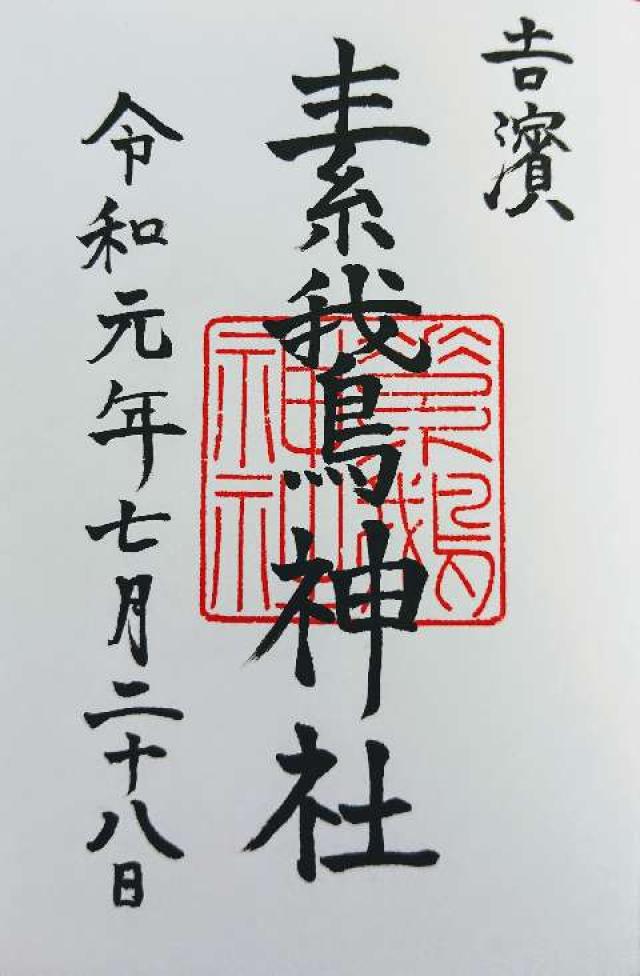 吉濱
素鵞神社
令和元年七月二十八日
素鵞
神社